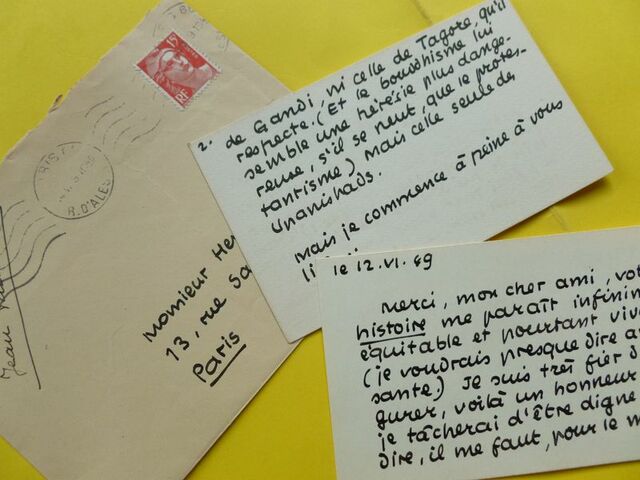 15
RF
R. D'ALES
Jean
Monsieur
13, rue
Paris
2. de Gandi, ni celle de Tagore, qu'il
respecte. (Et le bouddhisme lui
semble une hérésie plus dange-
reuse, s'il se peut, que le protes-
tantisme) Mais celle seule des
Upanishads.
Mais je commence à peine à vous
le 12. VI. 49
Merci, mon cher ami,
histoire me paraît
équitable et pourtant
(je voudrais presque dire
sante.) Je suis très fier
gurer, voilà un honneur
je tâcherai d'être digne
dire, il me faut, pour le